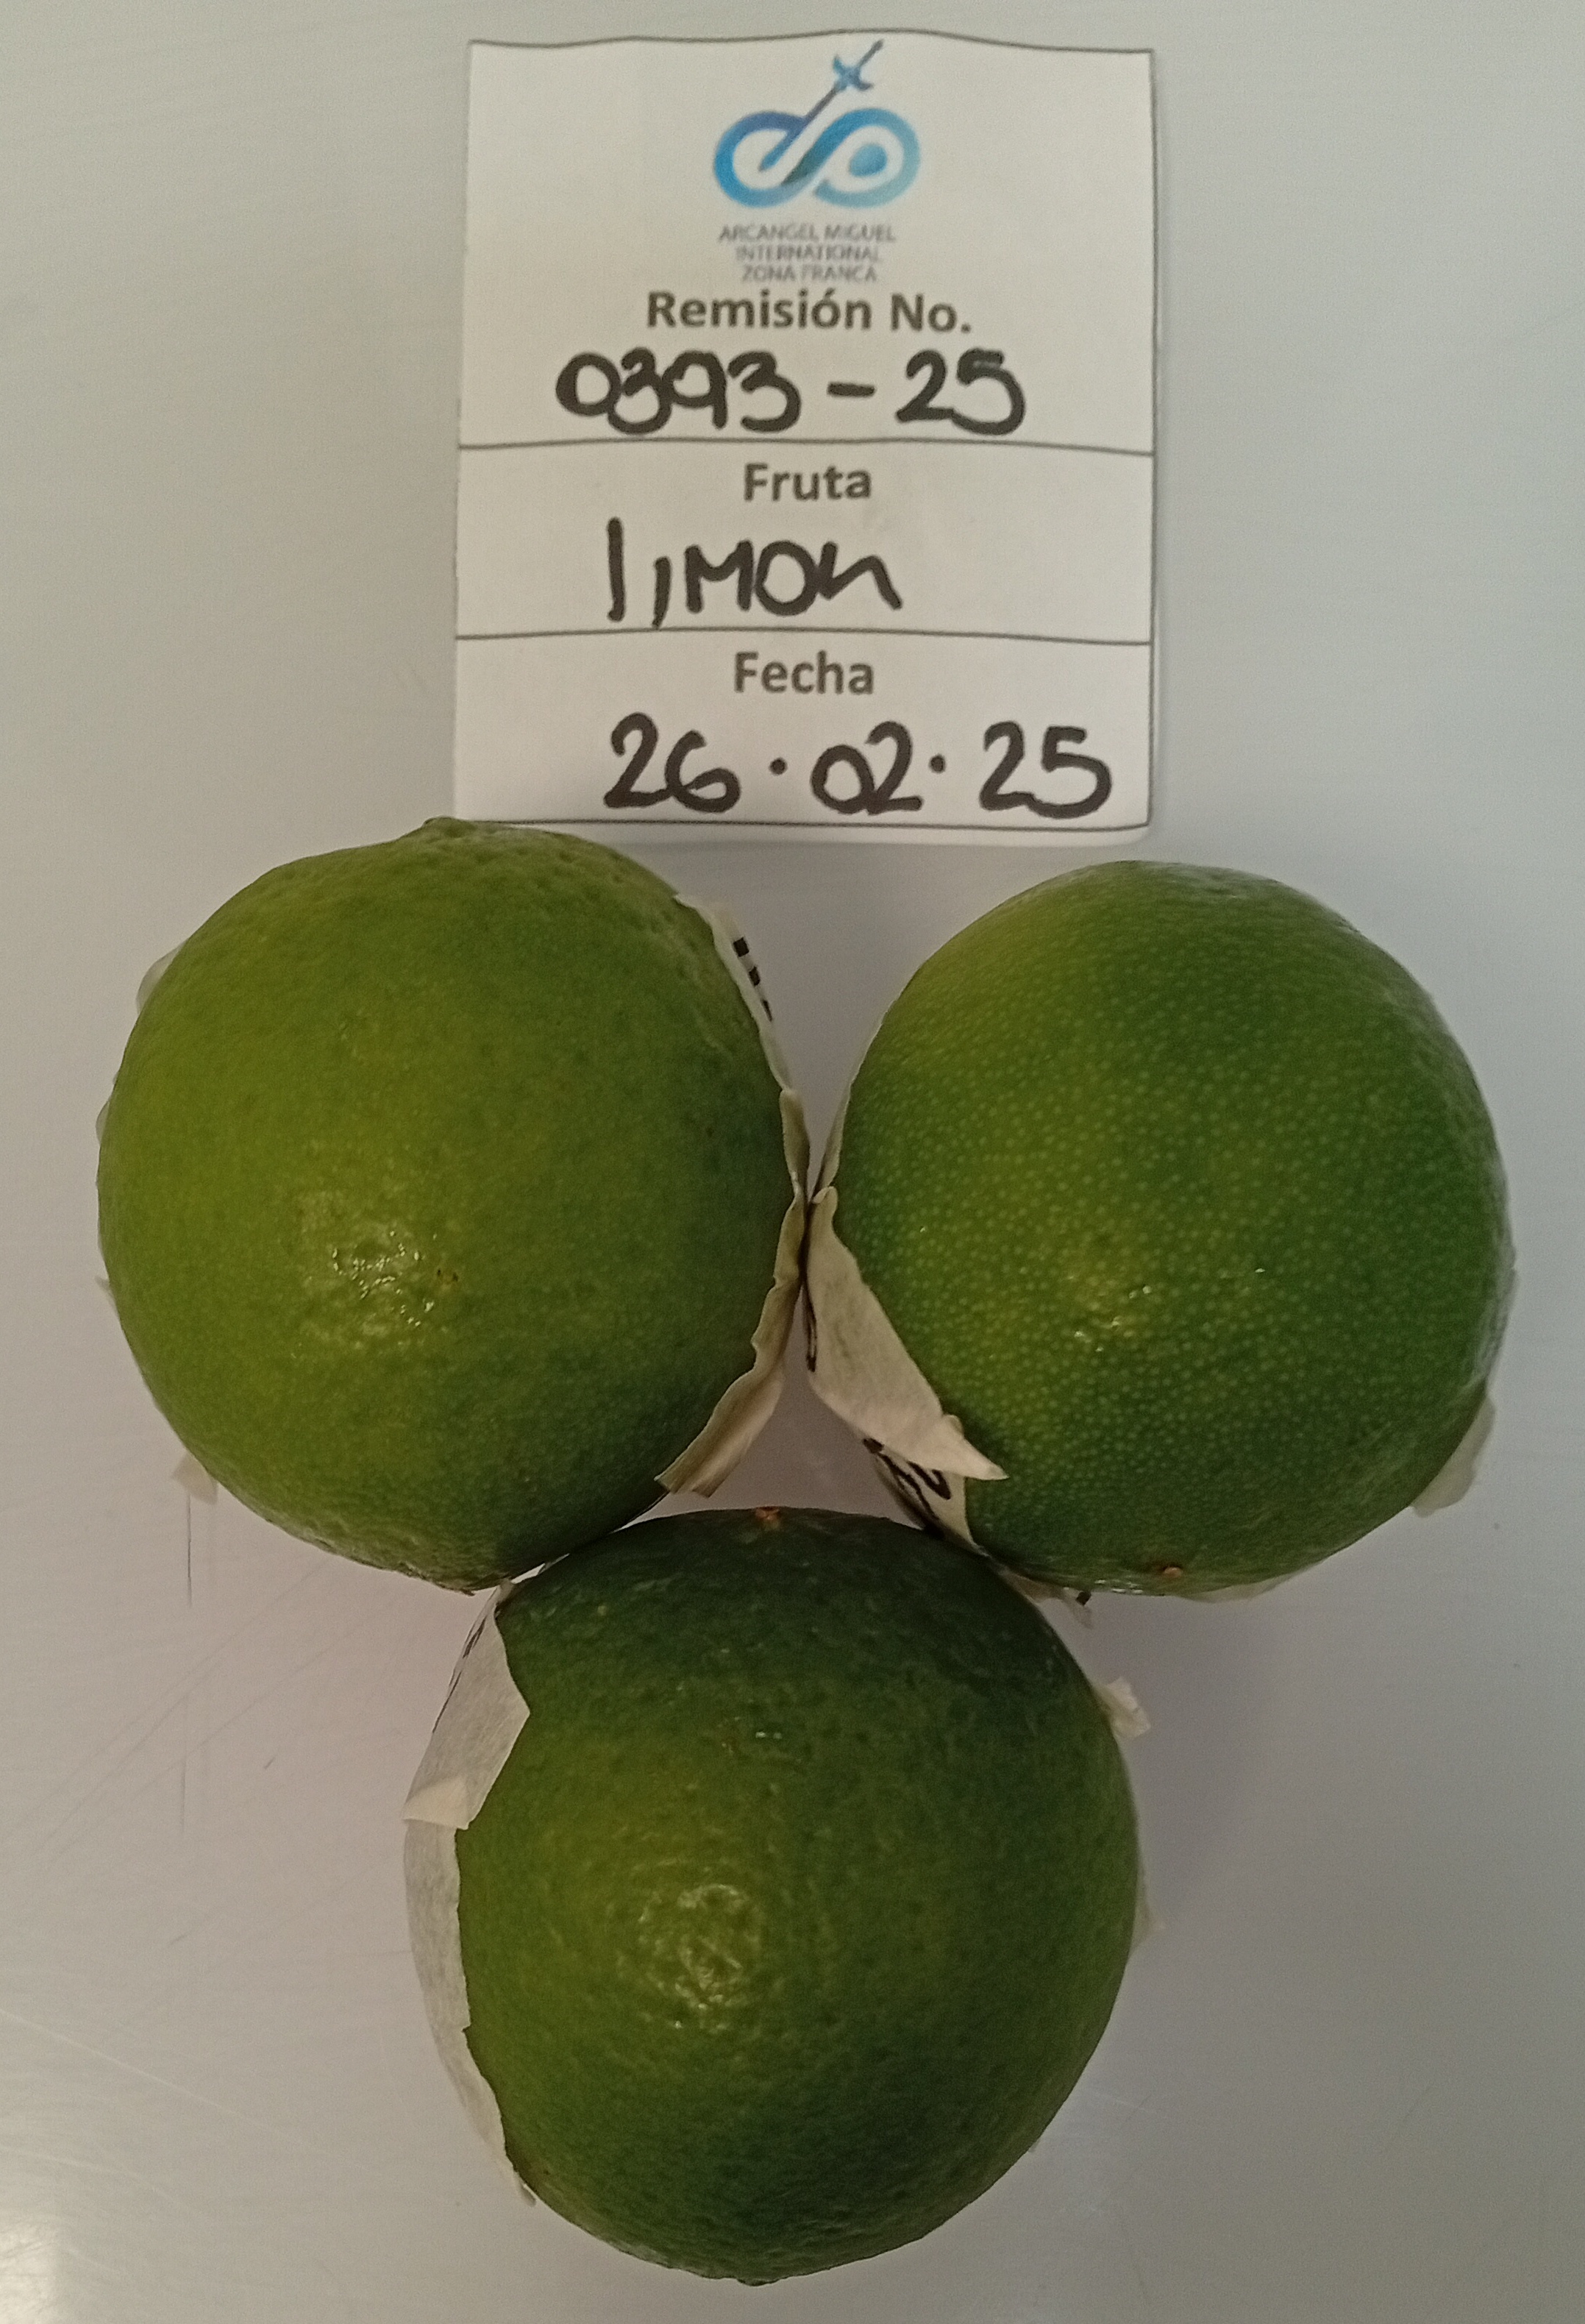 ARCANGEL MIGUEL
INTERNATIONAL
ZONA FRANCA
Remisión No.
0393-25
Fruta
limon
Fecha
26·02·25